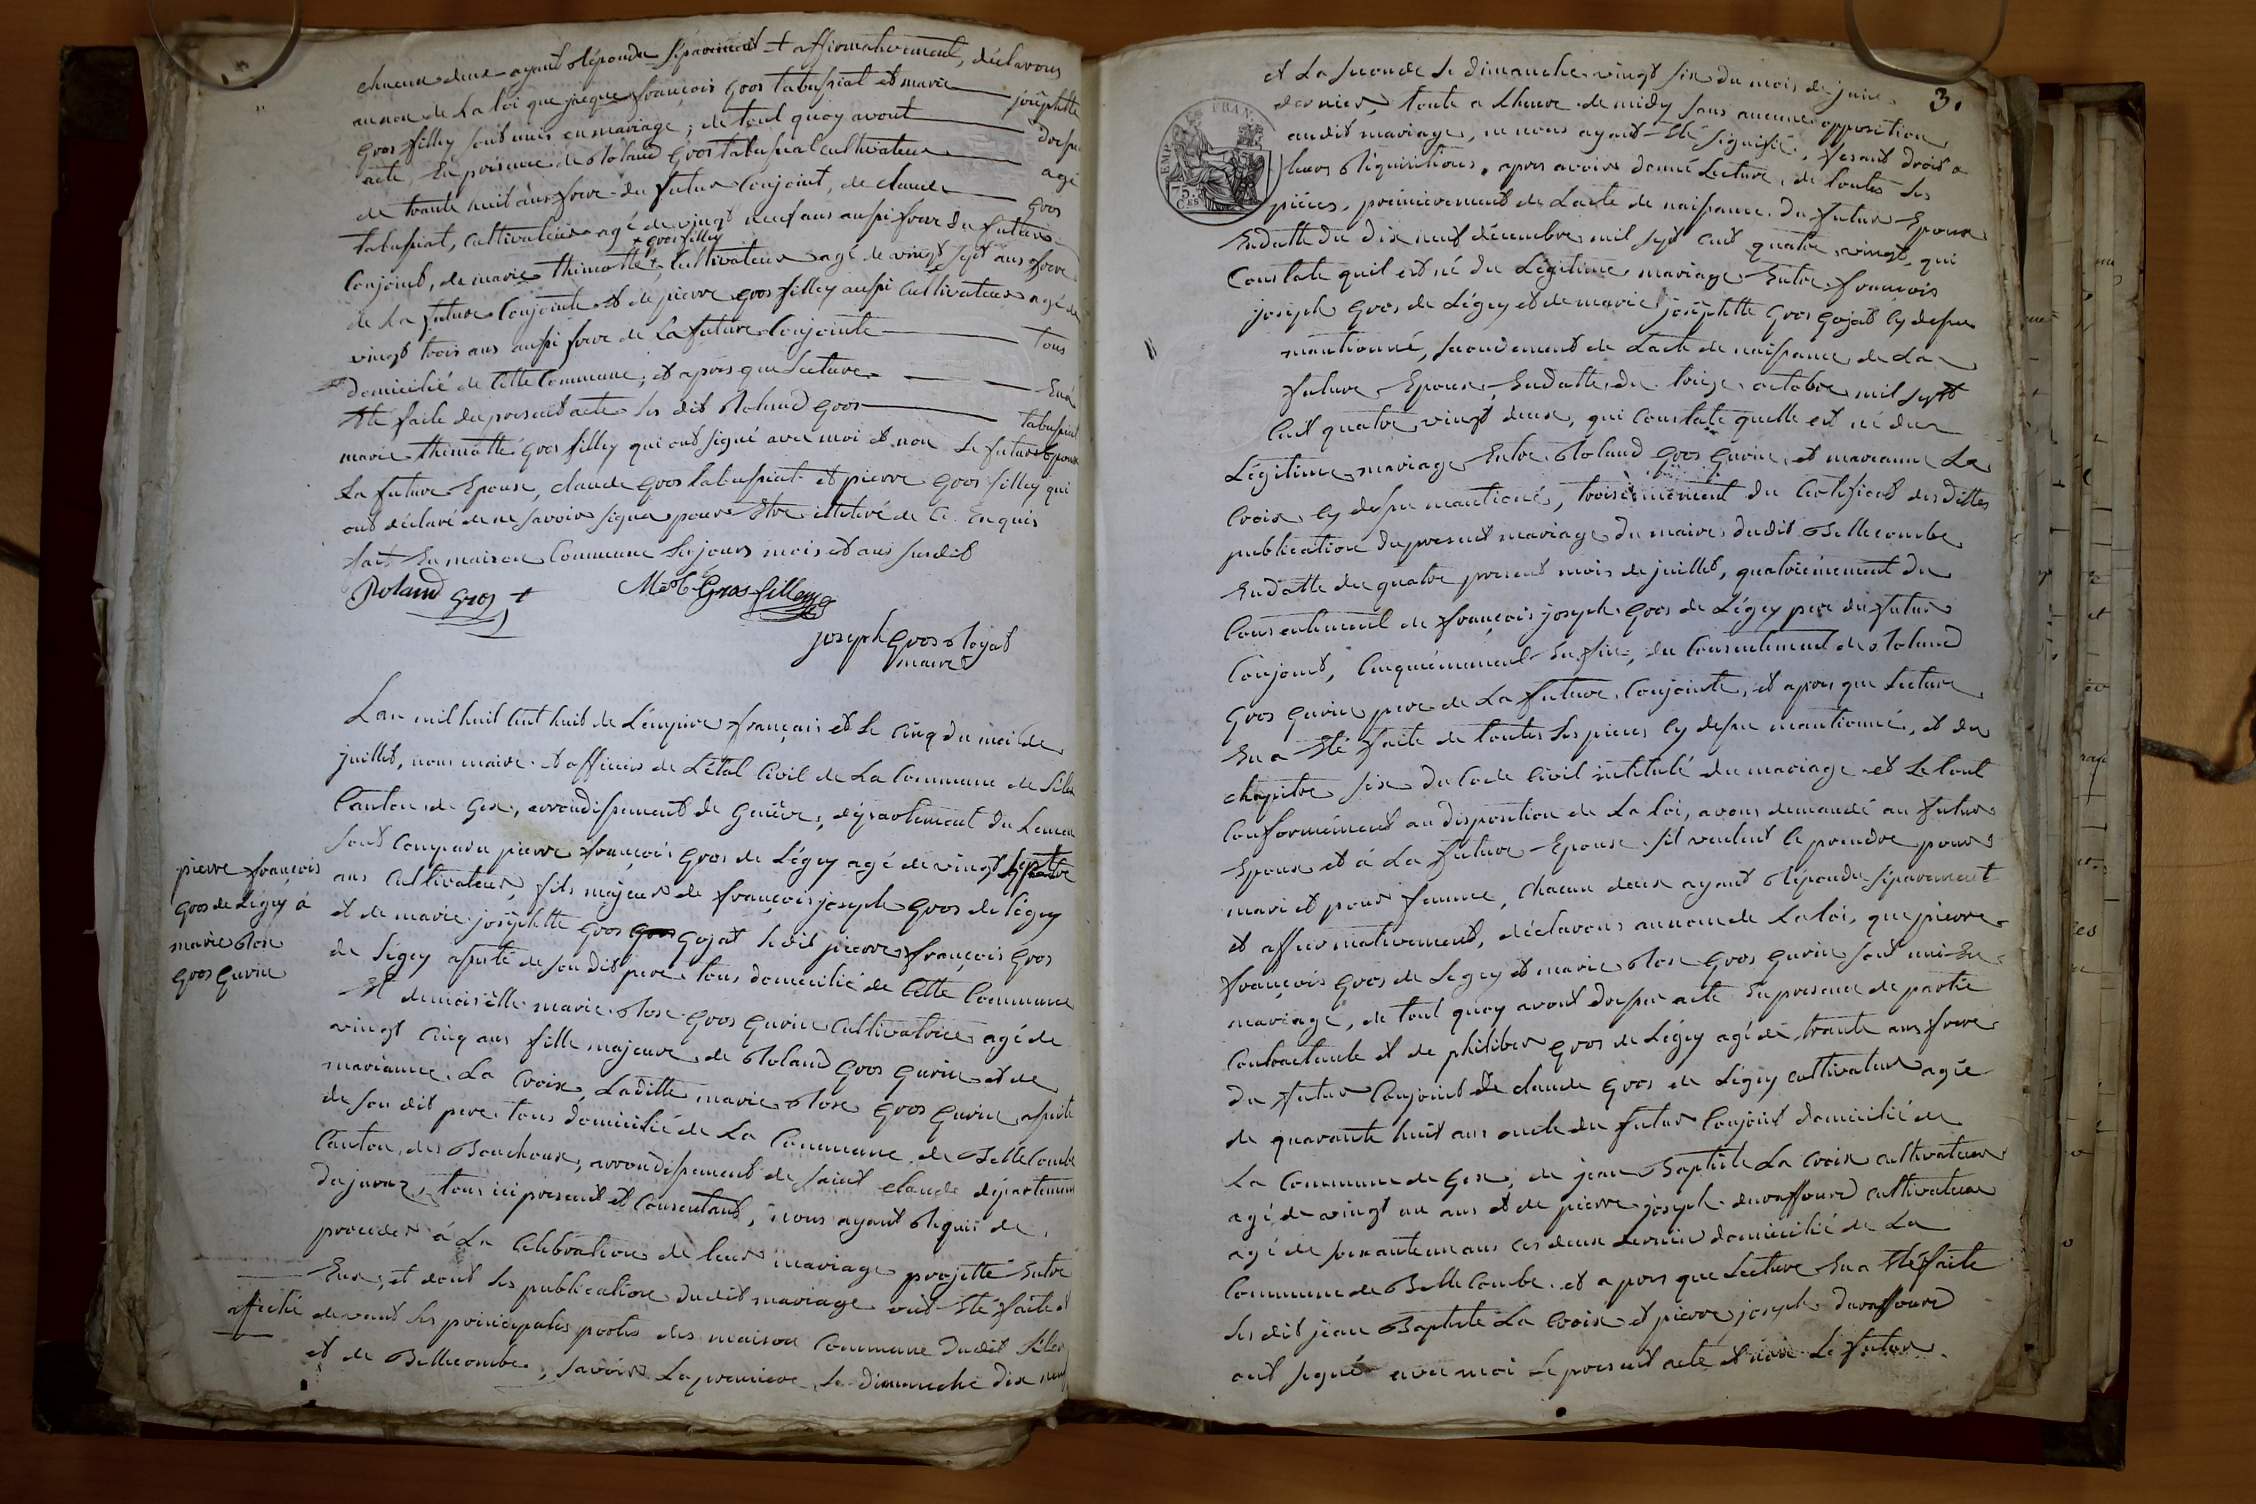 chacun deux ayant répondu séparément et affirmativement, déclarons
au nom de La loi que jacque françois Gros tabussiat et marie josèphtte
Gros filley sont unis en mariage; de tout quoy avont dressé
acte, En présence de Roland Gros tabussiat cultivateur agé
de trante huit ans frere du futur Conjoint, de claude Gros
tabussiat, cultivateur agé de vingt neuf ans aussi frere du futur
+ gros filley
Conjoint, de marie thimotté + Cultivateur agé de vingt sept ans frere
de La future Conjointe et de pierre gros filley aussi Cultivateur agé de
vingt trois ans aussi frere de La future Conjointe tous
domicilié de Cette Commune; et apres que Lecture En a
Eté faite du present acte Les dit Roland Gros tabussiat
marie thimotté Gros filley qui ont signé avec moi et non Le futur Epoux
La future Epouse, claude Gros tabussiat et pierre Gros filley qui
ont déclaré de ne savoir signer pour Etre illetiré de Ce Enquis
fait En maison Commune Les jours mois et ans susdit
Roland Gros +
M T Gros filley
joseph Gros Rojat
maire
Lan mil huit cent huit de L'empire français et Le cinq du mois de
juillet, nous maire et officier de L'état Civil de La Commune de
Canton de Gex, arrondissement de Genève, département du Leman
sont Comparu pierre françois Gros de Légey agé de vingt
ans Cultivateur, fils majeur de françois joseph Gros de Légey
et de marie josèphtte Gros Gojat Ledit pierre françois Gros
de Légey assisté de son dit pere tous domicilié de Cette Commune
Et demoiselle marie Rose Gros Gurin Cultivatrice agé de
vingt cinq ans fille majeure de Roland Gros Gurin et de
marianne La Croix, Laditte marie Rose Gros Gurin assisté
de son dit pere tous domicilié de La Commune de BelleCombe
Canton des Bouchoux, arrondissement de Saint claude département
du jura, tous ici present et Consentant, nous ayant Requis de
proceder á La Celebration de leur mariage projetté Entre
Eux, et dont Les publication dudit mariage ont Eté faite
affiché devant Les principales portes des maison Commune dudit
et de Bellecombe, savoir La premiere Le dimanche dix neuf
pierre françois
Gros de Légey á
marie Rose
Gros Gurin
3.
et La seconde Le dimanche vingt six du mois de juin
dernier, toute a Lheure de midy sans aucune opposition
audit mariage, ne nous ayant Eté signifié, fesant droit a
leurs Réquisitions, apres avoir donné Lecture, de toutes Les
piéces, premierement de Lacte de naissance du futur Epoux
Endatte du dix neuf décembre mil sept cent quatre vingt, qui
Constate quil est né du Légitime mariage Entre françois
joseph Gros de Légey et de marie josèphtte Gros Gojat Cy dessus
mantionné, secondement de Lacte de naissance de La
future Epouse, Endatte du treize octobre mil sept
Cent quatre vingt deux, qui Constate quelle est né du
Légitime mariage Entre Roland Gros Gurin, et marianne La
Croix Cy dessus mantioné, troisiemement du Certificat desdittes
publication du present mariage du maire dudit Bellecombe
Endatte du quatre present mois de juillet, quatriemement du
Consentiment de françois joseph Gros de Légey pere du futur
Conjoint, Cinquiémement Enfin, du Consentiment de Roland
Gros Gurin pere de La future Conjointe, et apres que Lecture
En a Eté faite de toutes Les pieces Cy dessus mantionné, et du
chapitre six du Code Civil intitulé du mariage et Le tout
Conformément au disposition de La Loi, avons demandé au futur
Epoux et á La future Epouse sil veulent Ce prendre pour
mari et pour femme, chacun deux ayant Répondu séparement
et affirmativement, déclarons au nom de La Loi, que pierre
françois Gros de Légey et marie Rose Gros Gurin sont uni En
mariage, de tout quoy avont dressé acte En presence de partie
Contractante et de philiber Gros de Légey agé de trante ans frere
du futur Conjoint de claude Gros de Légey cultivateur agée
de quarante huit ans oncle du futur Conjoint domicilié de
La Commune de Gex, de jean Baptiste La Croix cultivateur
agé de vingt un ans et de pierre joseph duraffourd cultivateur
agé de soixante un ans ces deux dernier domicilié de La
Commune de BelleCombe et apres que Lecture En a Eté faite
Les dit jean Baptiste La Croix et pierre joseph duraffourd
ont signé avec moi Le present acte et non Le futur
FRAN.
EMP.
75
Ces